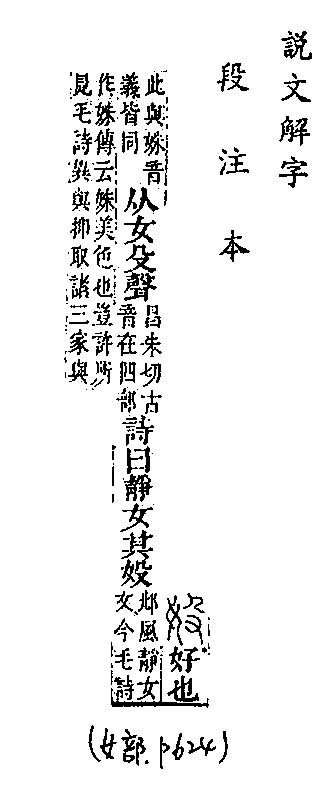 説文解字
段注本
㚥好也
此與姝音義皆同从女殳聲昌朱切古音在四部詩曰靜女其㚥邶風靜女文今毛詩
作姝傳云姝美色也豈許所
見毛詩異與抑取諸三家與
(女部.p624)